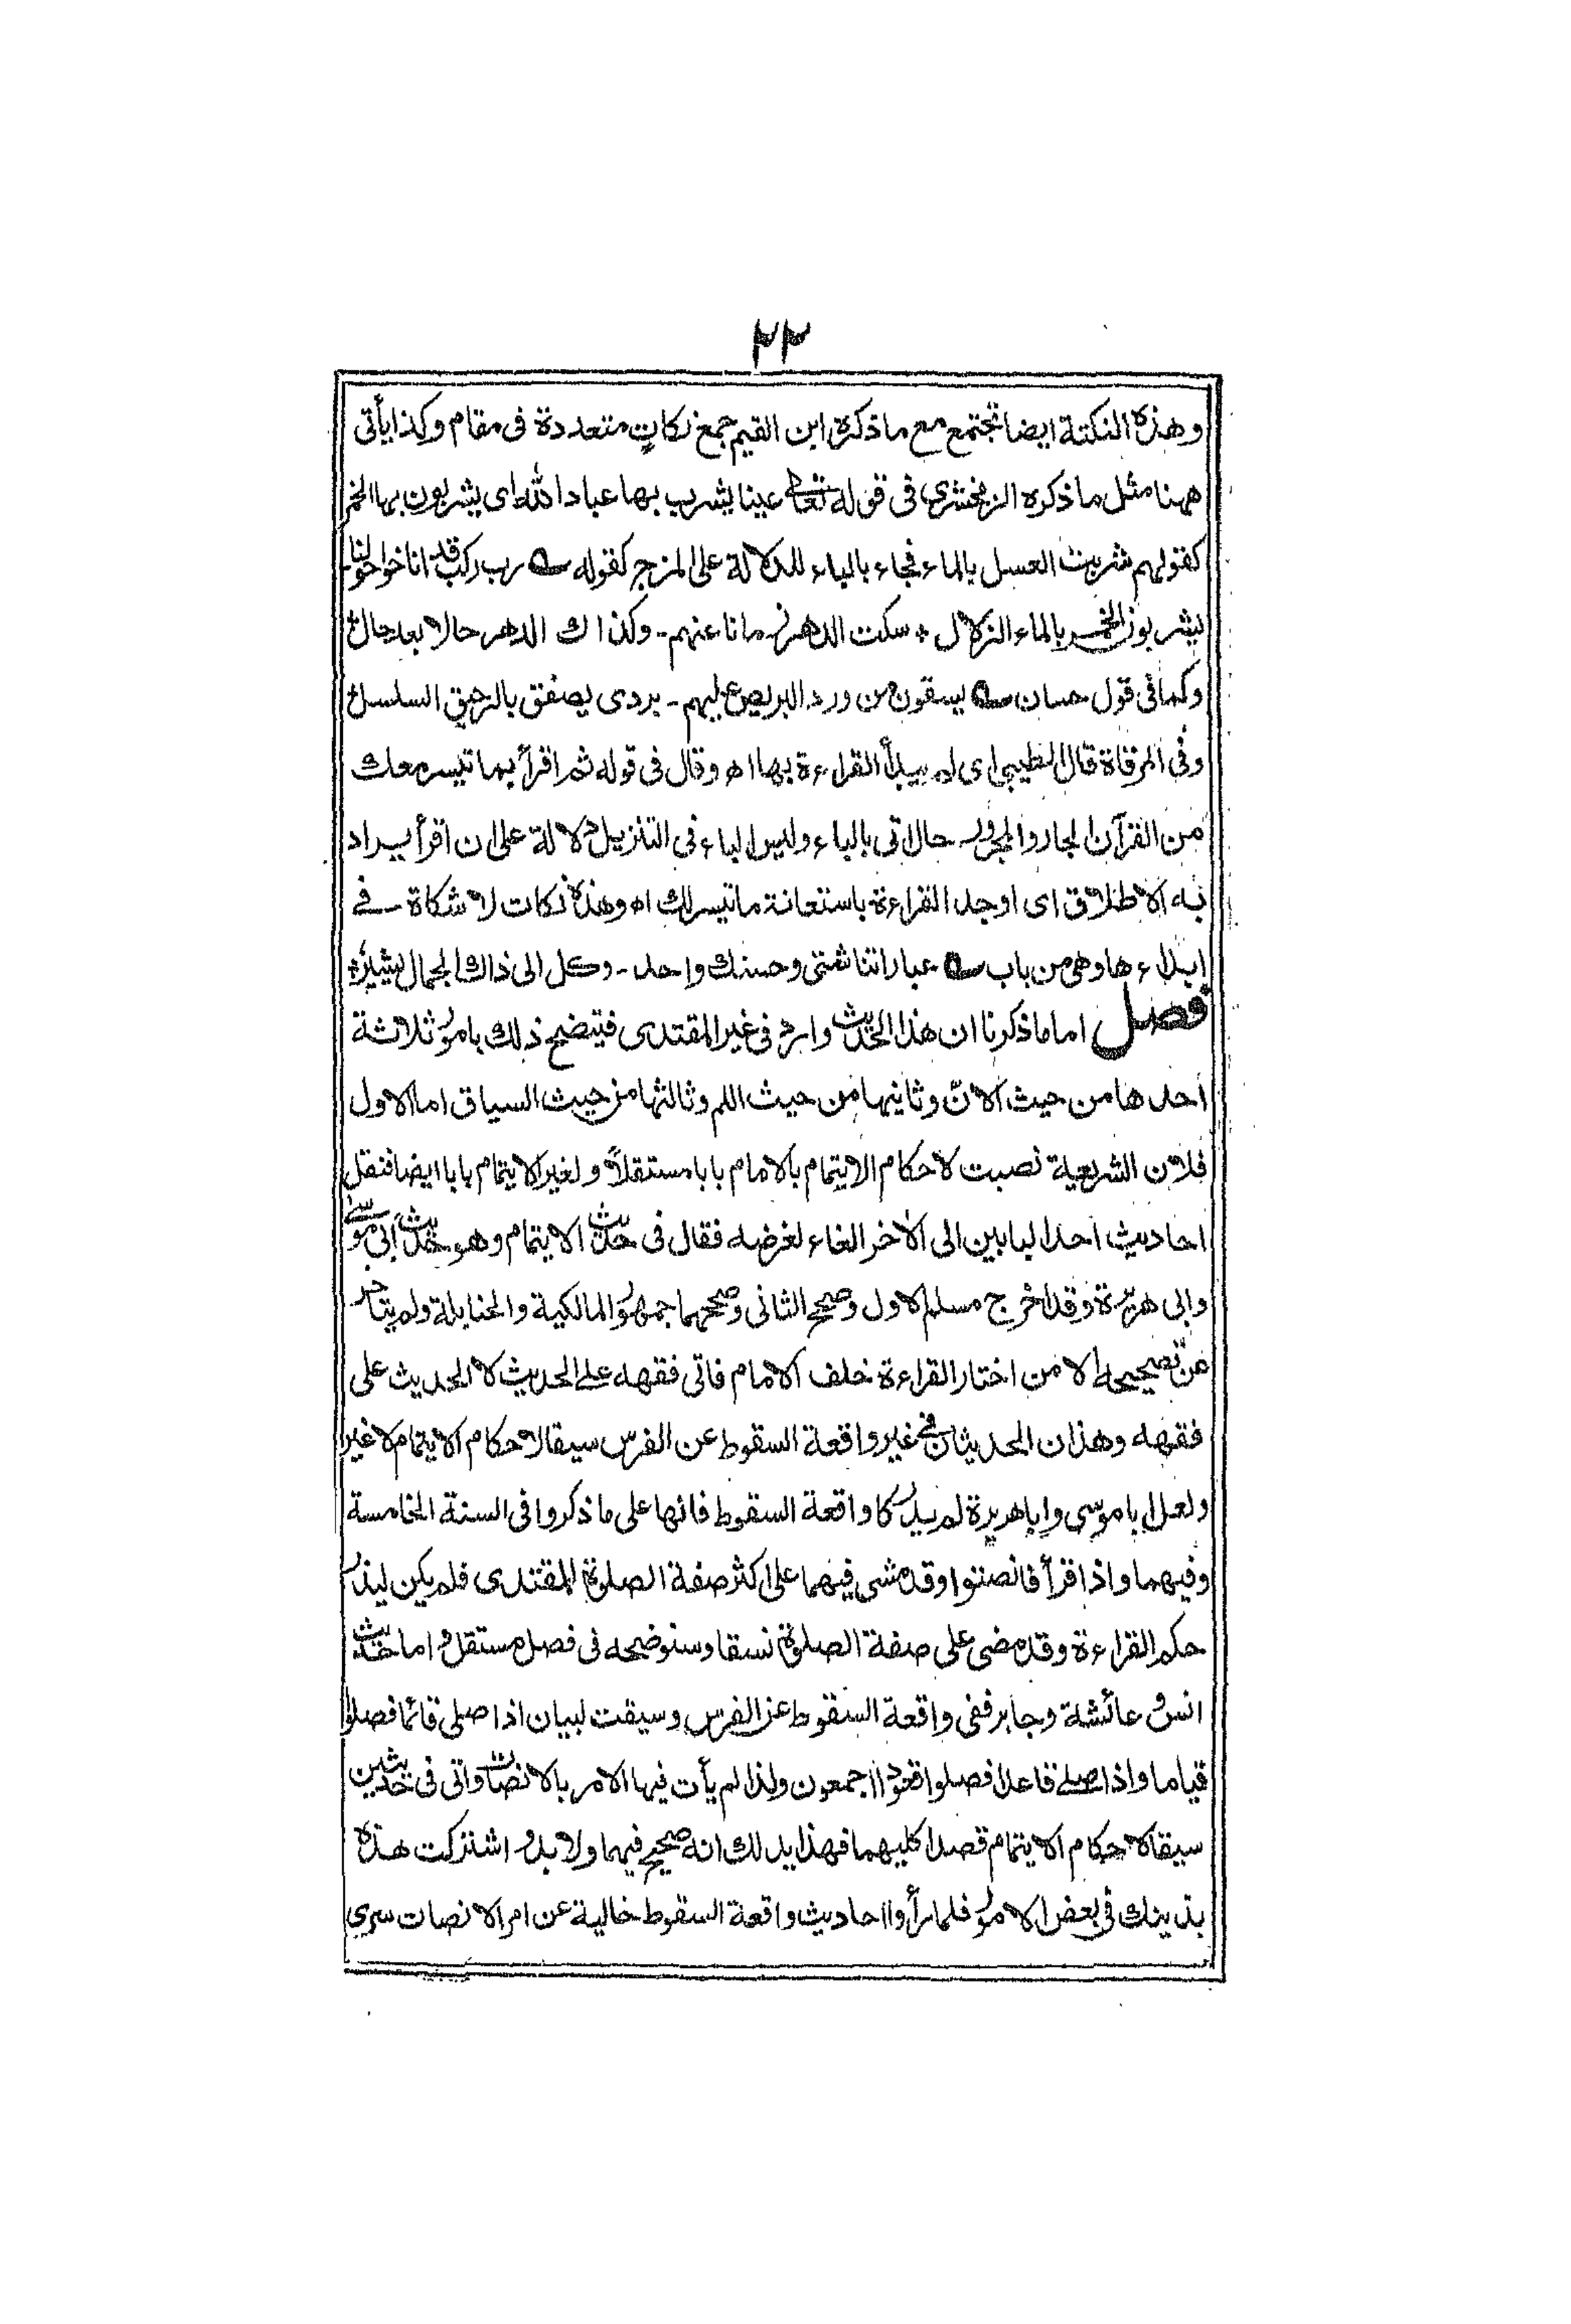 ٢٢
وهذه النكتة ايضا تجتمع مع ما ذكره ابن القيم جمع نكات متعددة فى مقام وكذا يأتى
ههنا مثل ما ذكره الزمخشرى فى قوله تعالے عينا يشرب بها عباد الله اى يشربون بها الخمر
كقولهم شربت العسل بالماء فجاء بالباء للدلالة على المزج كقوله رب ركب قد اناخوا حولنا
يشربون الخمر بالماء الزلال ٭ سكت الدهر زمانا عنهم - وكذاك الدهر حالا بعد حال
وكما فى قول حسان يسقون من ورد البريص عليهم - بردى يصفق بالرحيق السلسل
وفى المرقاة قال الطيبى اى لم يبدأ القراءة بها اه وقال فى قوله ثم اقرأ بما تيسر معك
من القرآن الجار والمجرور حال اتى بالباء وليس الباء فى التنزيل دلالة على ان اقرأ يراد
به الاطلاق اى اوجد القراءة باستعانة ما تيسر لك اه وهذه نكات لا شكاة فے
ابداءها وهى من باب عباراتنا شتى وحسنك واحد - وكل الى ذاك الجمال يشير
فصل اما ما ذكرنا ان هذا الحديث وارد فى غير المقتدى فيتضح ذلك بامور ثلاثة
احدها من حيث الانّ وثانيها من حيث اللم وثالثها من حيث السياق اما الاول
فلان الشريعة نصبت لاحكام الايتمام بالامام بابا مستقلاً ولغير الايتمام بابا ايضا فنقل
احاديث احد البابين الى الآخر الغاء لغرضه فقال فى حديث الايتمام وهو حديث أبى موسے
وابى هريرة وقد اخرج مسلم الاول وصحح الثانى وصححهما جمهور المالكية والحنابلة ولم يتأخر
عن تصحيحه الا من اختار القراءة خلف الامام فاتى فقهه علے الحديث لا الحديث على
فقهه وهذان الحديثان فے غير واقعة السقوط عن الفرس سيقا لاحكام الايتمام لا غير
ولعل ابا موسى وابا هريرة لم يدركا واقعة السقوط فانها على ما ذكروا فى السنة الخامسة
وفيهما واذا قرأ فانصتوا وقد مشى فيهما على اكثر صفة الصلوة للمقتدى فلم يكن ليذر
حكم القراءة وقد مضى على صفة الصلوة نسقا وسنوضحه فى فصل مستقل و اما حديث
انس و عائشة وجابر ففى واقعة السقوط عن الفرس وسيقت لبيان اذا صلى قائما فصلوا
قياما واذا صلے قاعدا فصلوا قعودا اجمعون ولذا لم يأت فيها الامر بالانصات واتى فى حديثين
سيقا لاحكام الايتمام قصدا كليهما فهذا يدلك انه صحيح فيهما ولا بد و اشتركت هذه
بذينك فى بعض الامور فلما رأوا احاديث واقعة السقوط خالية عن امر الانصات سرى